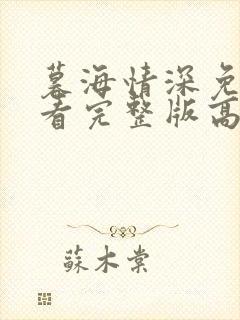 暮海情深免
看完整版高
蘇木棠